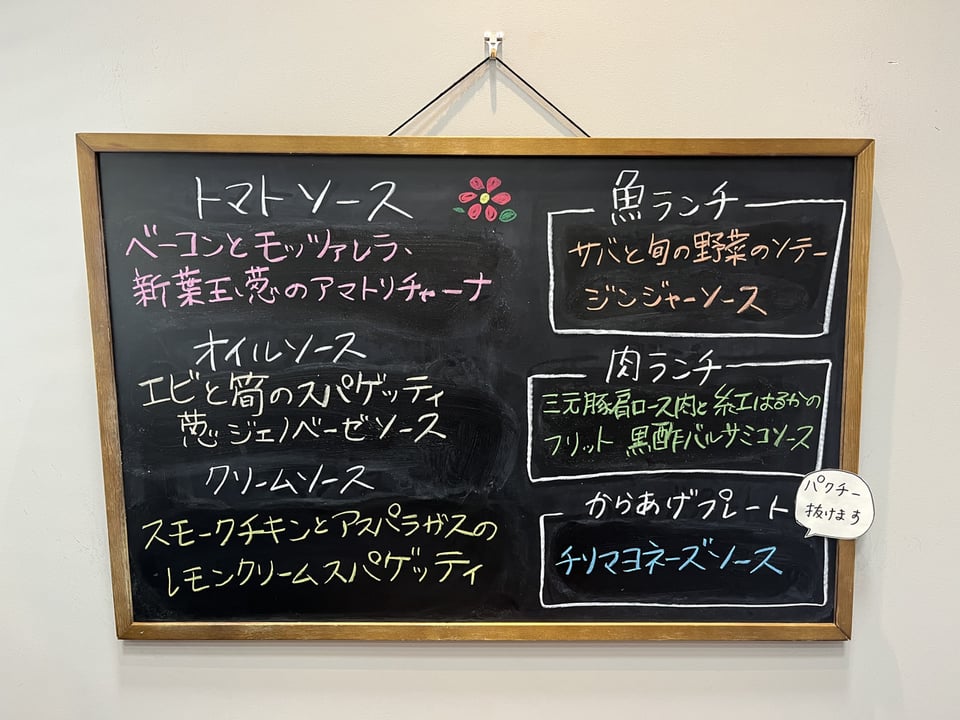 トマトソース
ベーコンとモッツァレラ、
新葉玉葱のアマトリチャーナ
オイルソース
エビと筍のスパゲッティ
葱ジェノベーゼソース
クリームソース
スモークチキンとアスパラガスの
レモンクリームスパゲッティ
魚ランチ
サバと旬の野菜のソテー
ジンジャーソース
肉ランチ
三元豚肩ロース肉と紅はるかの
フリット 黒酢バルサミコソース
からあげプレート
チリマヨネーズソース
パクチー
抜けます